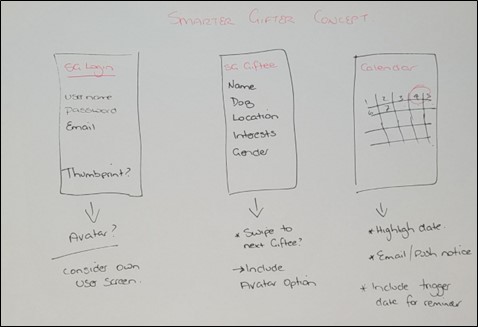 SMARTER GIFTER CONCEPT
SG Login
Username
Password
Email
Thumbprint?
Avatar?
Consider own
User Screen.
SG Giftee
Name
Location
Interests
Gender
* Swipe to
next Giftee?
→ Include
Avatar Option
Calendar
1 2 3 4 5
6 7
* Highligh date.
* Email/Push notice
* Include trigger
date for